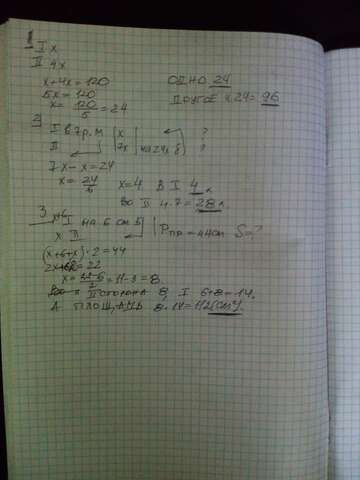 1 I x
II 4x
x+4x=120 ОДНО 24
5x=120
x=120/5=24 ДРУГОЕ 4.24=96
2 I в 7р. м | x ?
II | 7x на 24л б ) ?
7x-x=24
x=24/6 x=4 В I 4 л
Во II 4.7=28 л
3 x+6 I на 6 см б | Pпр=44см S=?
x II
(x+6+x)·2=44
=22
=11-3=8
II сторона 8, I 6+8=14.
А ПЛОЩАДЬ 8.14=112(см²).